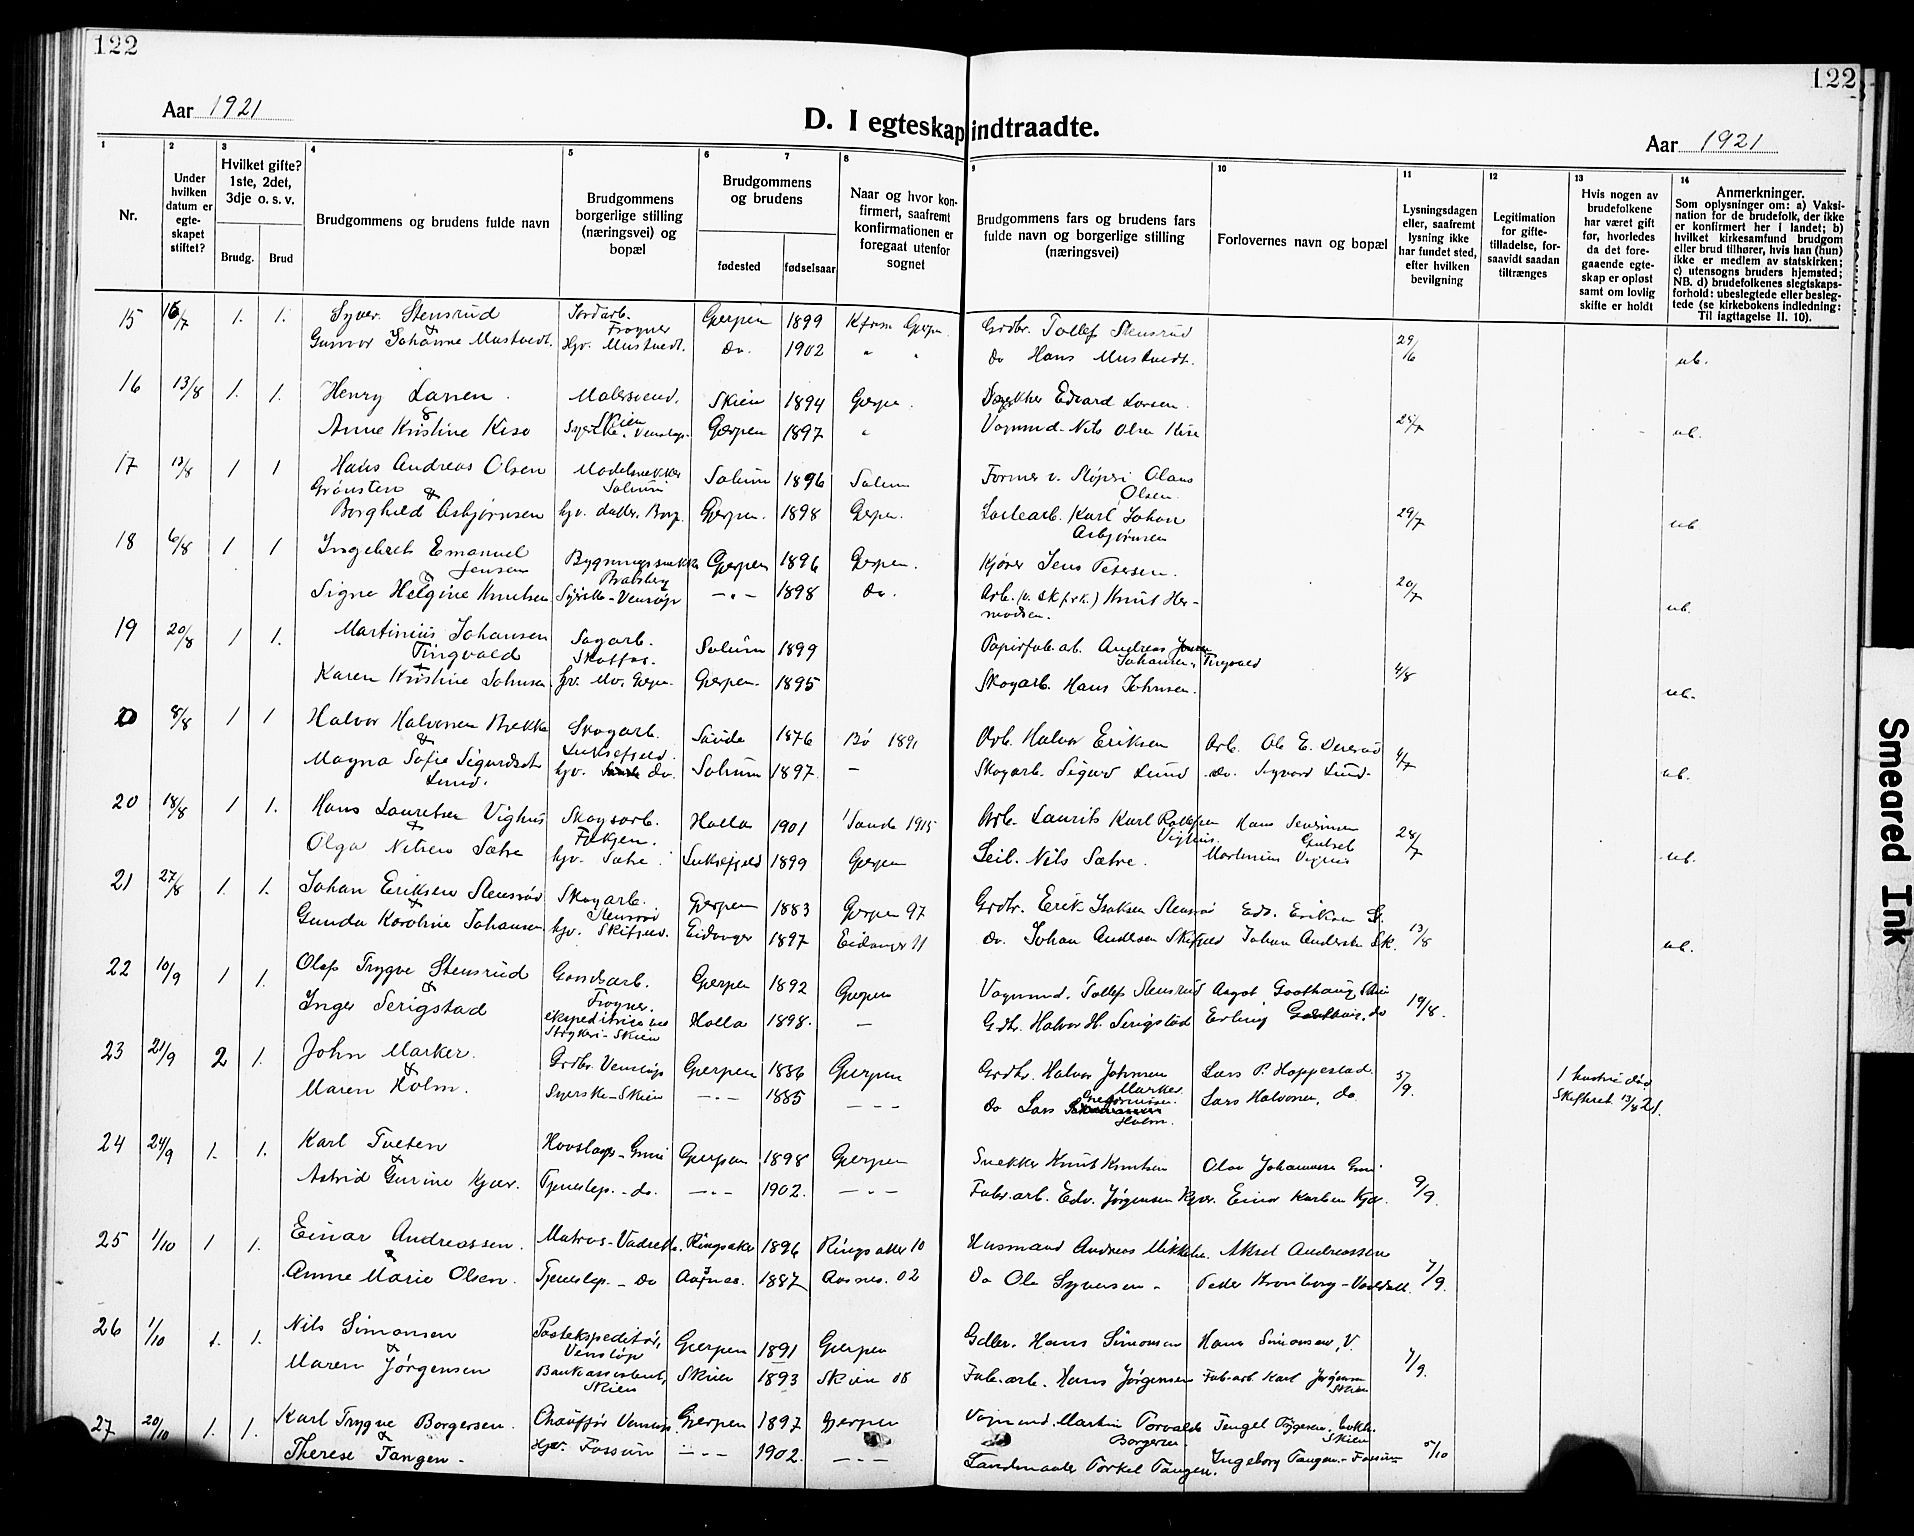 122
122
Aar 1921
D. I egteskap indtraadte.
Aar 1921
1
Nr.
2
Under hvilken datum er egte-skapet stiftet?
3
Hvilket gifte? 1ste, 2det, 3dje o. s. v.
Brudg.
Brud
4
Brudgommens og brudens fulde navn
5
Brudgommens borgerlige stilling (næringsvei) og bopæl
6
7
Brudgommens og brudens
fødested
fødselsaar
8
Naar og hvor kon-firmert, saafremt konfirmationen er foregaat utenfor sognet
9
Brudgommens fars og brudens fars fulde navn og borgerlige stilling (næringsvei)
10
Forlovernes navn og bopæl
11
Lysningsdagen eller, saafremt lysning ikke har fundet sted, efter hvilken bevilgning
12
Legitimation for gifte-tilladelse, for-saavidt saadan tiltrænges
13
Hvis nogen av brudefolkene har været gift før, hvorledes da det fore-gaaende egte-skap er opløst samt om lovlig skifte er holdt
14
Anmerkninger.
Som oplysninger om: a) Vaksi-nation for de brudefolk, der ikke er konfirmert her i landet; b) hvilket kirkesamfund brudgom eller brud tilhører, hvis han (hun) ikke er medlem av statskirken; c) utensogns bruders hjemsted; NB. d) brudefolkenes slegtskaps-forhold: ubeslegtede eller besleg-tede (se kirkebokens indledning: Til iagttagelse II. 10).
15 16/7 1. 1. Syver Stensrud Jordarb. Frogner Gjerpen 1899 Gjerpen Grdbr. Tollef Stensrud 29/6
&
Gunvor Johanne Mustvedt Hjv. Mustvedt. do. 1902 " " do Hans Mustvedt. ub.
16 13/8 1. 1. Henry Larsen. Malersvend. Skien Skien 1894 Gjerpen. Edvard Larsen.
&
Anne Kristine Kise Syerske. Venstøp. Gjerpen 1897 " Vognmd. Nils Olsen Kise 25/7 ub.
17 13/8 1 1 Hans Andreas Olsen Grønsten Modelsnekker Solum Solum 1896 Solum Former v. Støperi Olaus Olsen.
&
Borghild Asbjørnsen hjv. datter. Borg. Gjerpen. 1898 Gjerpen. Karl Johan Asbjørnsen 29/7 ub
18 6/8 1 1 Ingebret Emanuel Jensen Bygningssnekker Bratsberg Gjerpen 1896 Gjerpen. Kjører Jens Petersen.
&
Signe Helgine Knutsen Syerske - Venstøp - " - 1898 do. Arb. Knut Her-modsen. 20/7 ub.
19 20/8 1 1. Martinius Johansen Tingvald Sagarb. Skotfos. Solum 1899 Papirfab. arb. Andreas Johansen Tingvald
&
Karen Kristine Johnsen hjv. Gjerpen. Gjerpen. 1895 Skogarb. Hans Johnsen. 4/8 ub.
20 8/8 1 1 Halvor Halvorsen Bækka Skogarb. Luksefjeld. Saude 1876 Bø 1891 Arb. Halvor Eriksen Arb. Ole E.
&
Magna Sofie Sigurdsdt Lund. hjv. do. Solum 1897. - Skogarb. Sigurd Lund do. Sigvard Lund. 4/7 ub.
20 18/8 1 1. Hans Lauritsen Vighus Skogsarb. Holla 1901 Saude 1915 Arb. Laurits Karl Vighus. Hans
+
Olga Nilsen Sætre hjv. Sætre. Luksefjeld 1899 Gjerpen Nils Sætre. Martinius Vighus 28/7 ub.
21 27/8 1. 1. Johan Eriksen Stensrød Skogarb. Stensrød Gjerpen 1883 Gjerpen 97 Grdbr. Erik Isaksen Stensrød Edv. Eriksen St.
+
Gunda Karoline Johansen hjv. Skifjeld. Eidanger 1897 Eidanger 11 do. Johan Andersen Skifjeld Johan Andersen Sk. 13/8 ub.
22 10/9 1 1. Olaf Trygve Stensrud Gaardsarb. Frogner. Gjerpen 1892 Gjerpen Vognmd. Tollef Stensrud Aagot Gaathaug, Skien
&
Inger Serigstad ekspeditrice Skien Holla 1898. - Gdbr. Halvor H. Serigstad Erling do 19/8.
23 21/9 2 1. John Marker. Grdbr. Venstøp Gjerpen 1886 Gjerpen Grdbr. Halvor Johnsen Marker Lars P. Hoppestad 5/9. 1 hustru død
&
Maren Holm. Syerske - Skien - " - 1885 - - - do Lars Holm. Lars Halvorsen, do. Skifteret. 13/8 21.
24 24/9 1. 1. Karl Tveten Hovslager - Gjerpen 1898 Gjerpen Snekker Knut Knutsen Olav Johannessen
&
Astrid Gurine Kjær. Tjenestep. - do. - " - 1902. - " - Fabr. arb. Edv. Jørgensen Kjær. Einar Karlsen Kjær. 9/9.
25 1/10 1 1. Einar Andreassen. Matros - Vadrette. Ringsaker 1896 Ringsaker 10 Husmand Andreas Mikkelsen. Aksel Andreassen
&
Anne Marie Olsen. Tjenestep. - do Aasnes. 1887 Aasnes. 02 do Ole Syversen - Peder Kronborg - Vadrette. 7/9.
26 1/10 1. 1. Nils Simonsen Postekspeditør, Venstøp Gjerpen 1891 Gjerpen Hans Simonsen Hans Simonsen, V.
&
Maren Jørgensen Bankassistent, Skien Skien 1893 Skien 08 Fab. arb. Hans Jørgensen Fab. arb. Karl Jørgensen Skien 7/9.
27 20/10 1. 1. Karl Trygve Borgersen. Chauffør Venstøp Gjerpen 1897 Gjerpen Vognmd. Martin Torvalds Borgersen. Skien
&
Therese Tangen - Hjv. Fossum - " - 1902. - " - Landmaaler Torkel Tangen. Ingeborg Tangen - Fossum 5/10
Smeared Ink